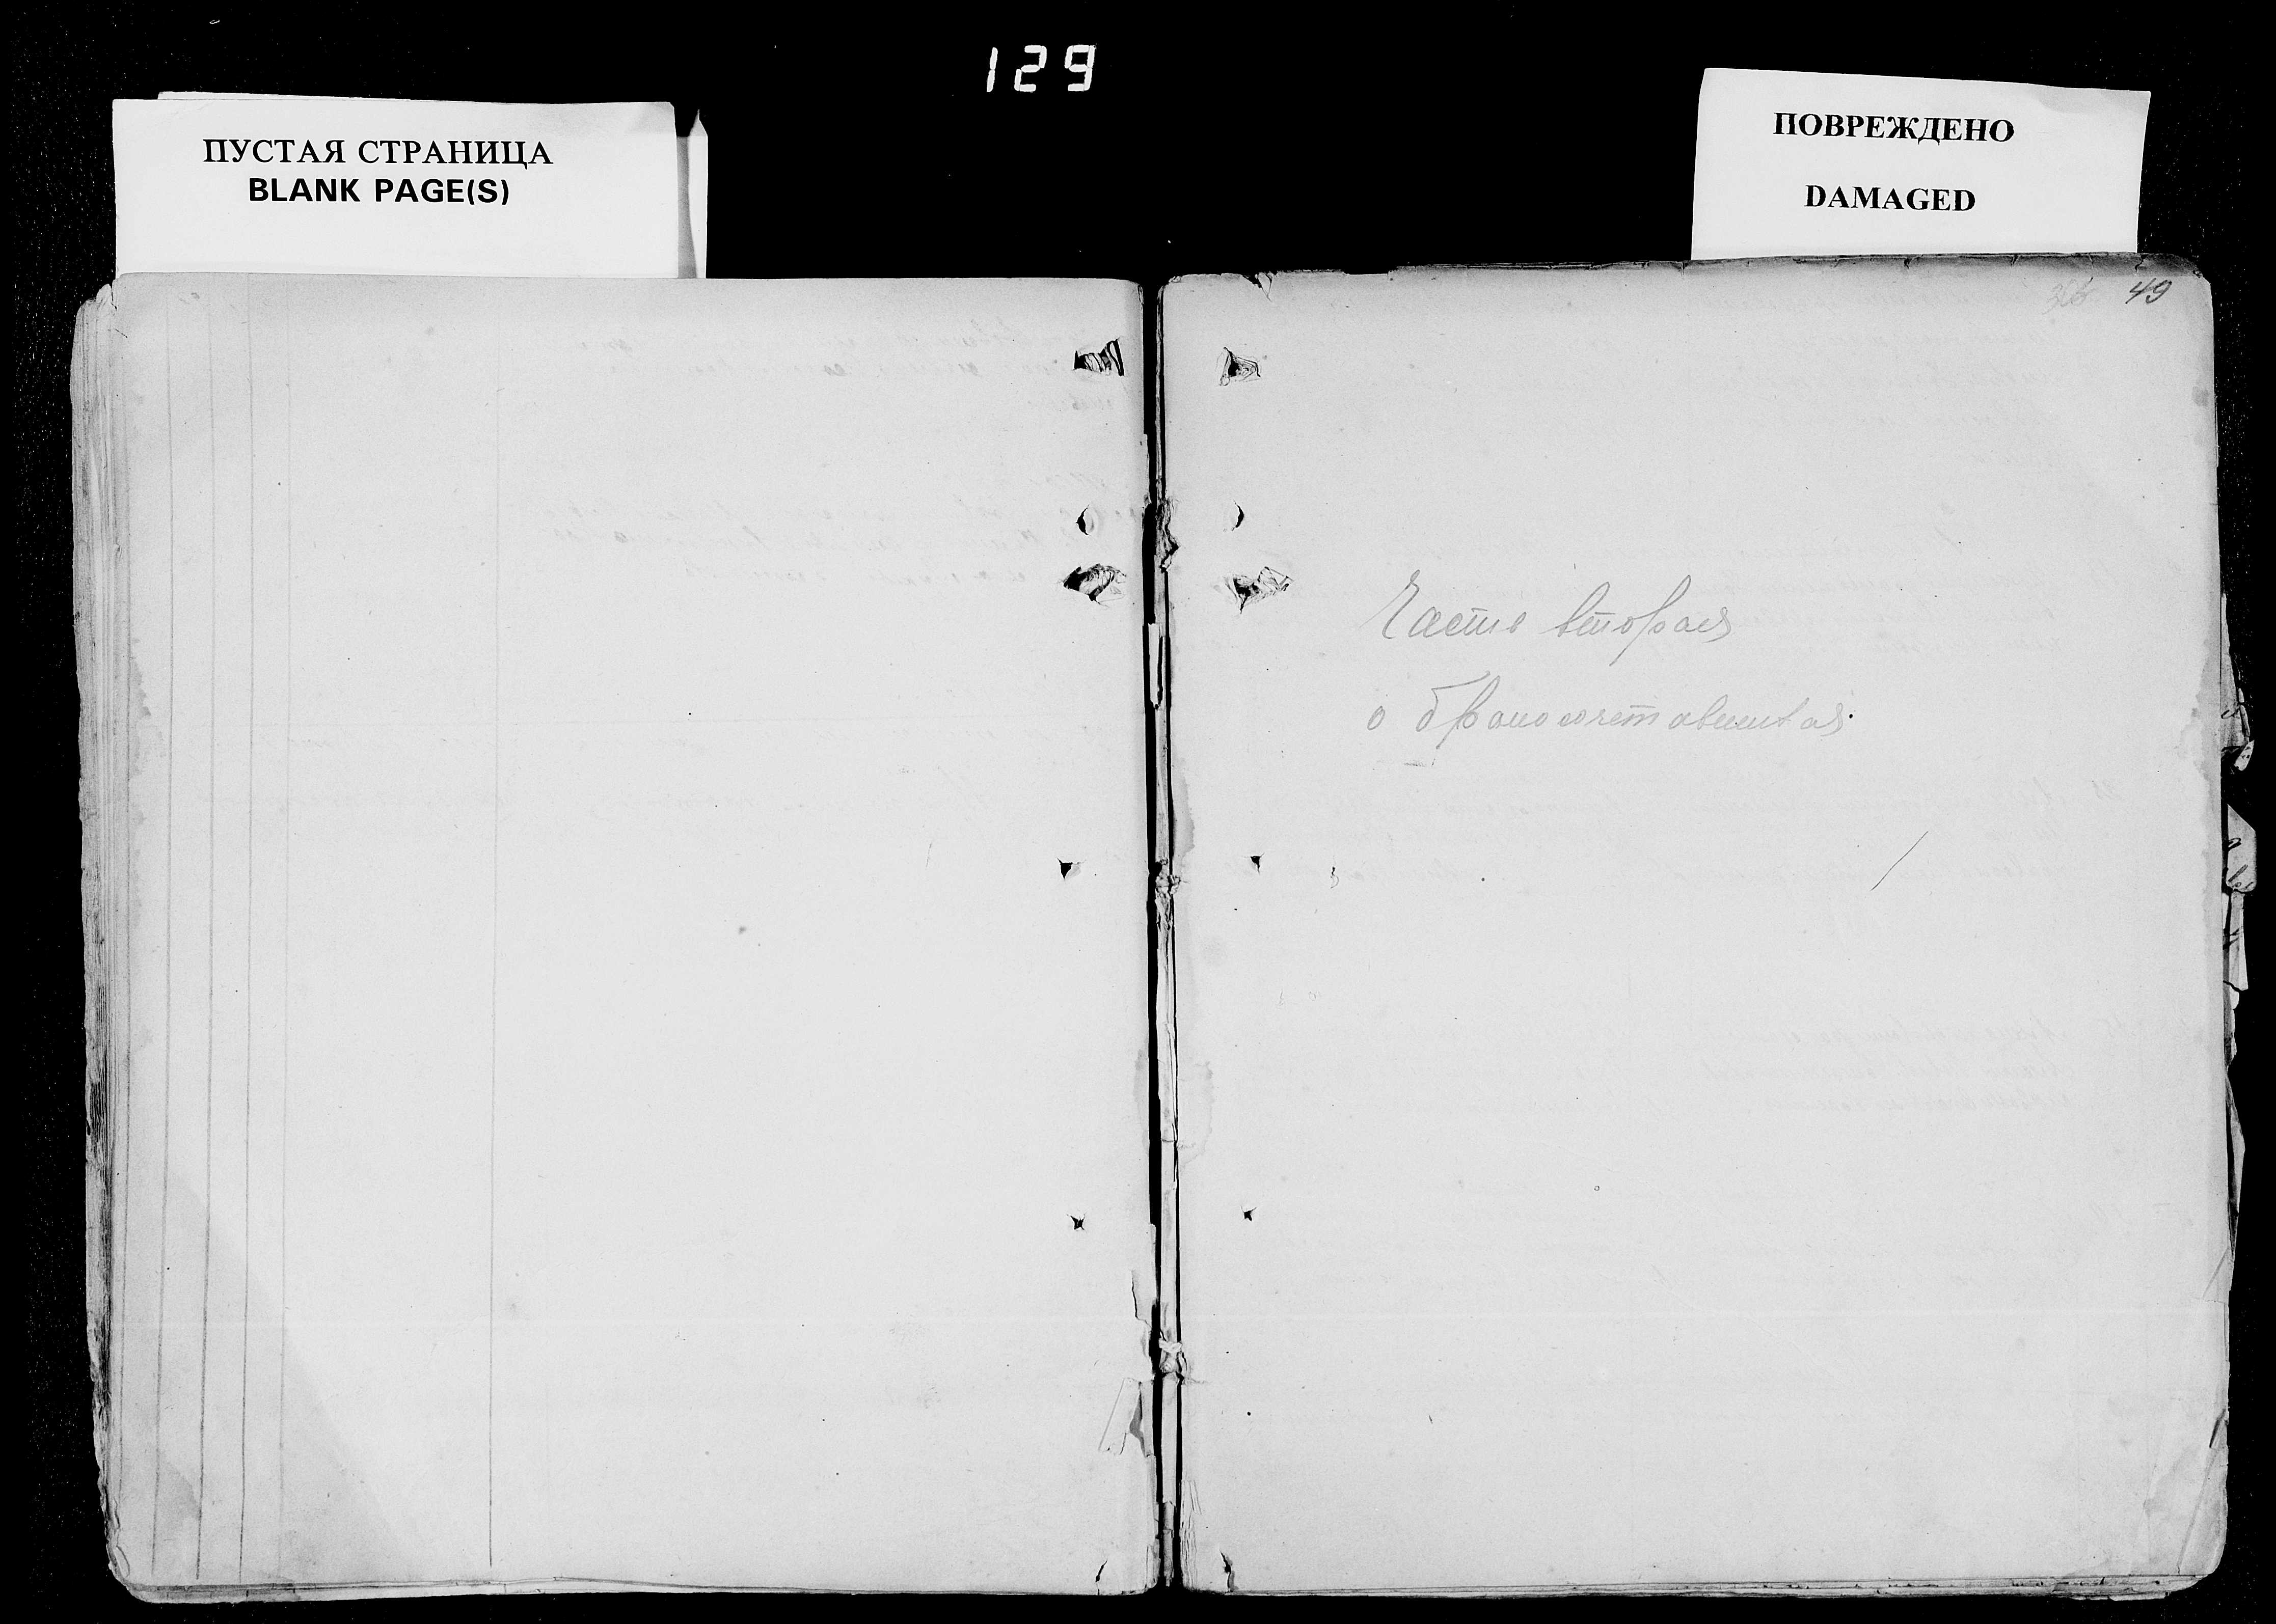 129
ПУСТАЯ СТРАНИЦА
BLANK PAGE(S)
ПОВРЕЖДЕНО
DAMAGED
49
Часть вторая
о бракосочетавшихся.